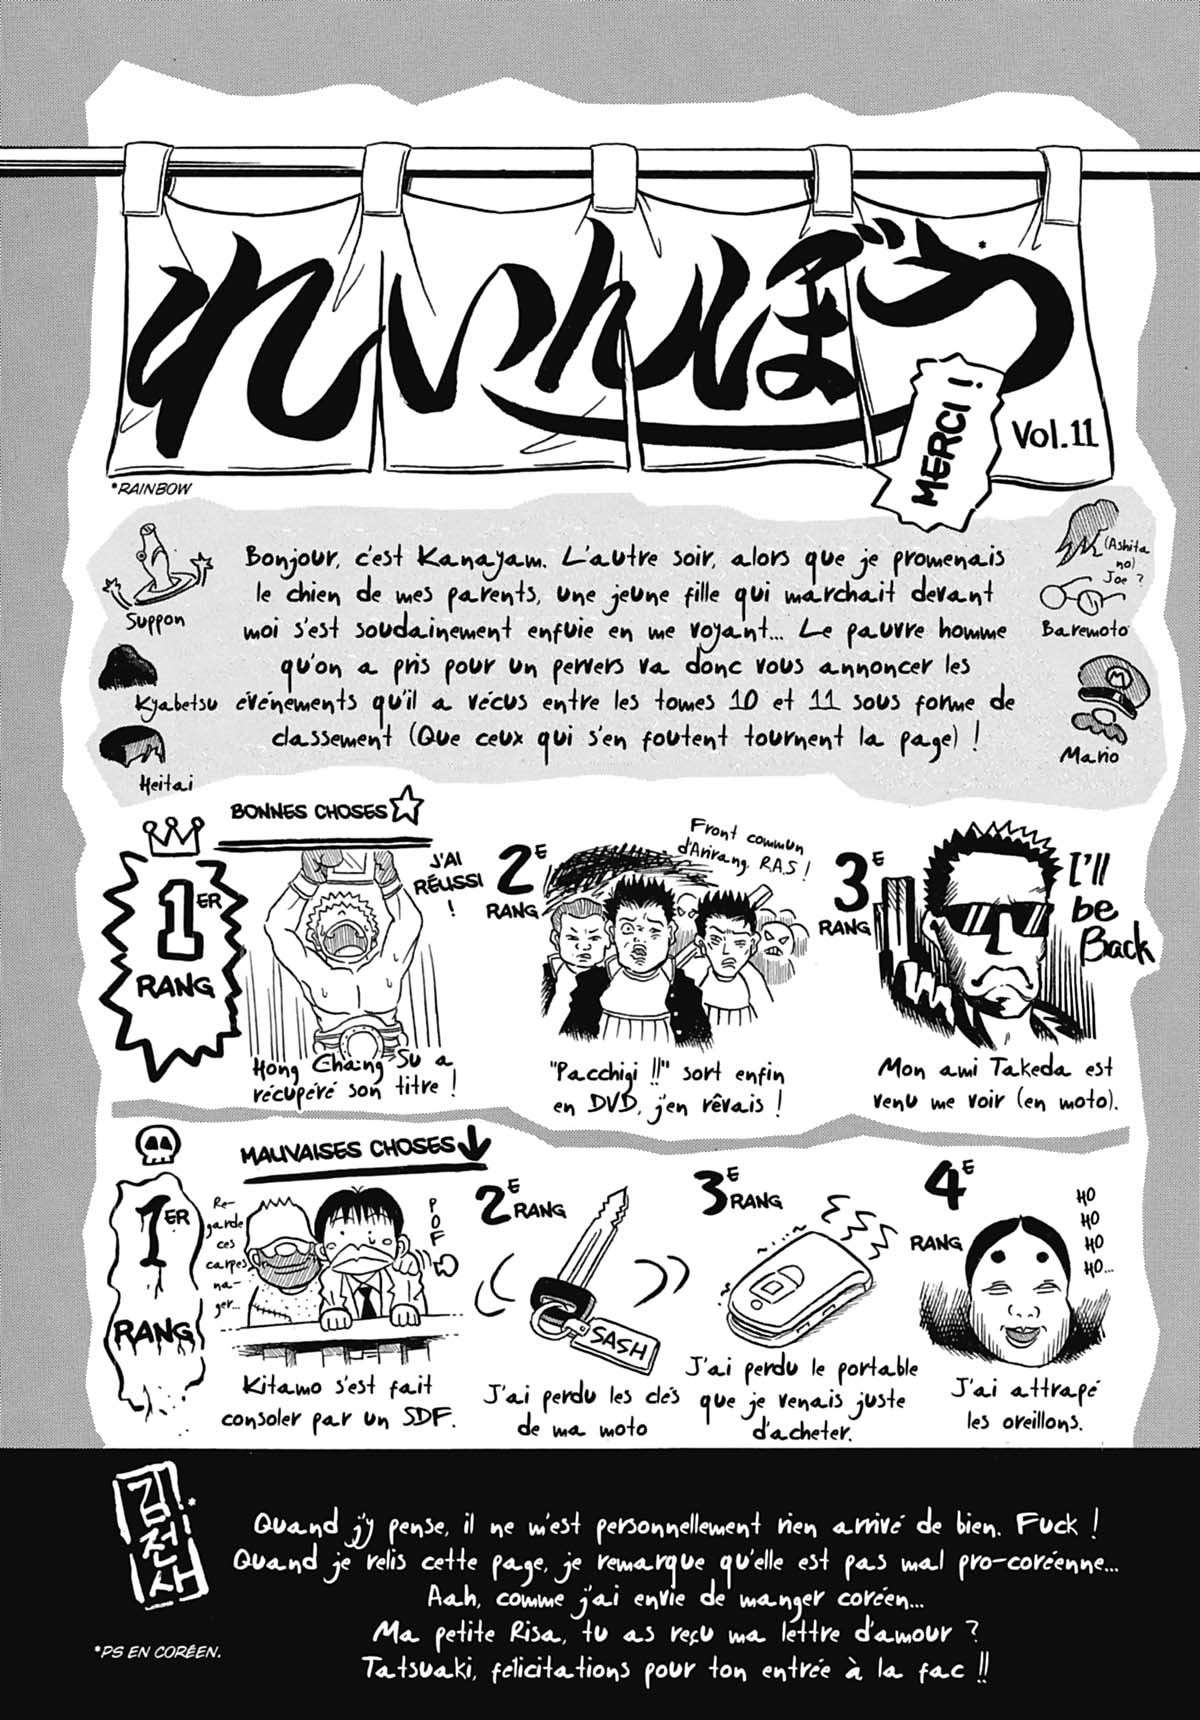 れいんぼう*
MERCI !
Vol.11
*RAINBOW
Suppon
Kyabetsu
Heitai
(Ashita
no)
Joe ?
Baremoto
Mario
Bonjour, c'est Kanayam. L'autre soir, alors que je promenais
le chien de mes parents, une jeune fille qui marchait devant
moi s'est soudainement enfuie en me voyant... Le pauvre homme
qu'on a pris pour un pervers va donc vous annoncer les
événements qu'il a vécus entre les tomes 10 et 11 sous forme de
classement (Que ceux qui s'en foutent tournent la page) !
BONNES CHOSES
1ER
RANG
J'AI
RÉUSSI
!
Hong Chang Su a
récupéré son titre !
2E
RANG
Front commun
d'Arirang R.A.S !
"Pacchigi !!" sort enfin
en DVD, j'en rêvais !
3E
RANG
I'll
be
Back
Mon ami Takeda est
venu me voir (en moto).
MAUVAISES CHOSES
1ER
RANG
Re-
garde
ces
carpes
na-
ger...
POF
Kitamo s'est fait
consoler par un SDF.
2E
RANG
SASH
J'ai perdu les clés
de ma moto
3E
RANG
J'ai perdu le portable
que je venais juste
d'acheter.
4E
RANG
HO
HO
HO
HO...
J'ai attrapé
les oreillons.
김전새*
*PS EN CORÉEN.
Quand j'y pense, il ne m'est personnellement rien arrivé de bien. Fuck !
Quand je relis cette page, je remarque qu'elle est pas mal pro-coréenne...
Aah, comme j'ai envie de manger coréen...
Ma petite Risa, tu as reçu ma lettre d'amour ?
Tatsuaki, félicitations pour ton entrée à la fac !!